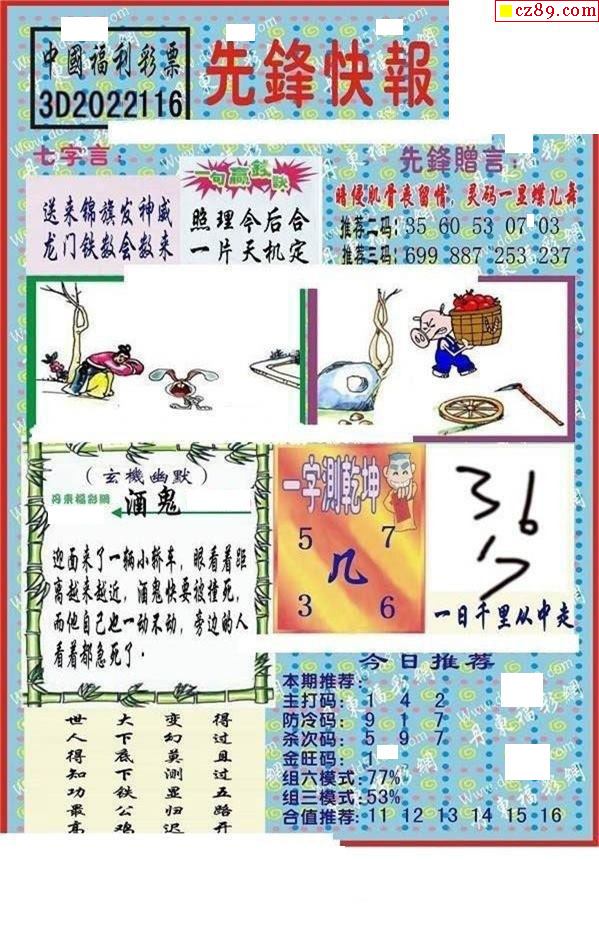 cz89.com
中國福利彩票
3D2022116
先鋒快報
七字言：
送来锦旗发神威
龙门铁数会数来
一句赢錢訣
照理今后合
一片天机定
先鋒贈言：
暗侵肌骨丧留情，灵码一显蝶儿舞
推荐二码：35 60 53 07 03
推荐三码：699 887 253 237
（玄機幽默）
丹東福彩網
酒鬼
迎面来了一辆小轿车，眼看着距
离越来越近，酒鬼快要被撞死，
而他自己也一动不动，旁边的人
看着都急死了。
一字測乾坤
5 7
几
3 6
36
17
一日千里从中走
今日推荐
本期推荐：
主打码：1 4 2
防冷码：9 1 7
杀次码：5 9 7
金旺码：1
组六模式：77%
组三模式：53%
合值推荐：11 12 13 14 15 16
世人得知功最高
大下底下铁公鸡
变幻莫测显归迟
得过且过五路开